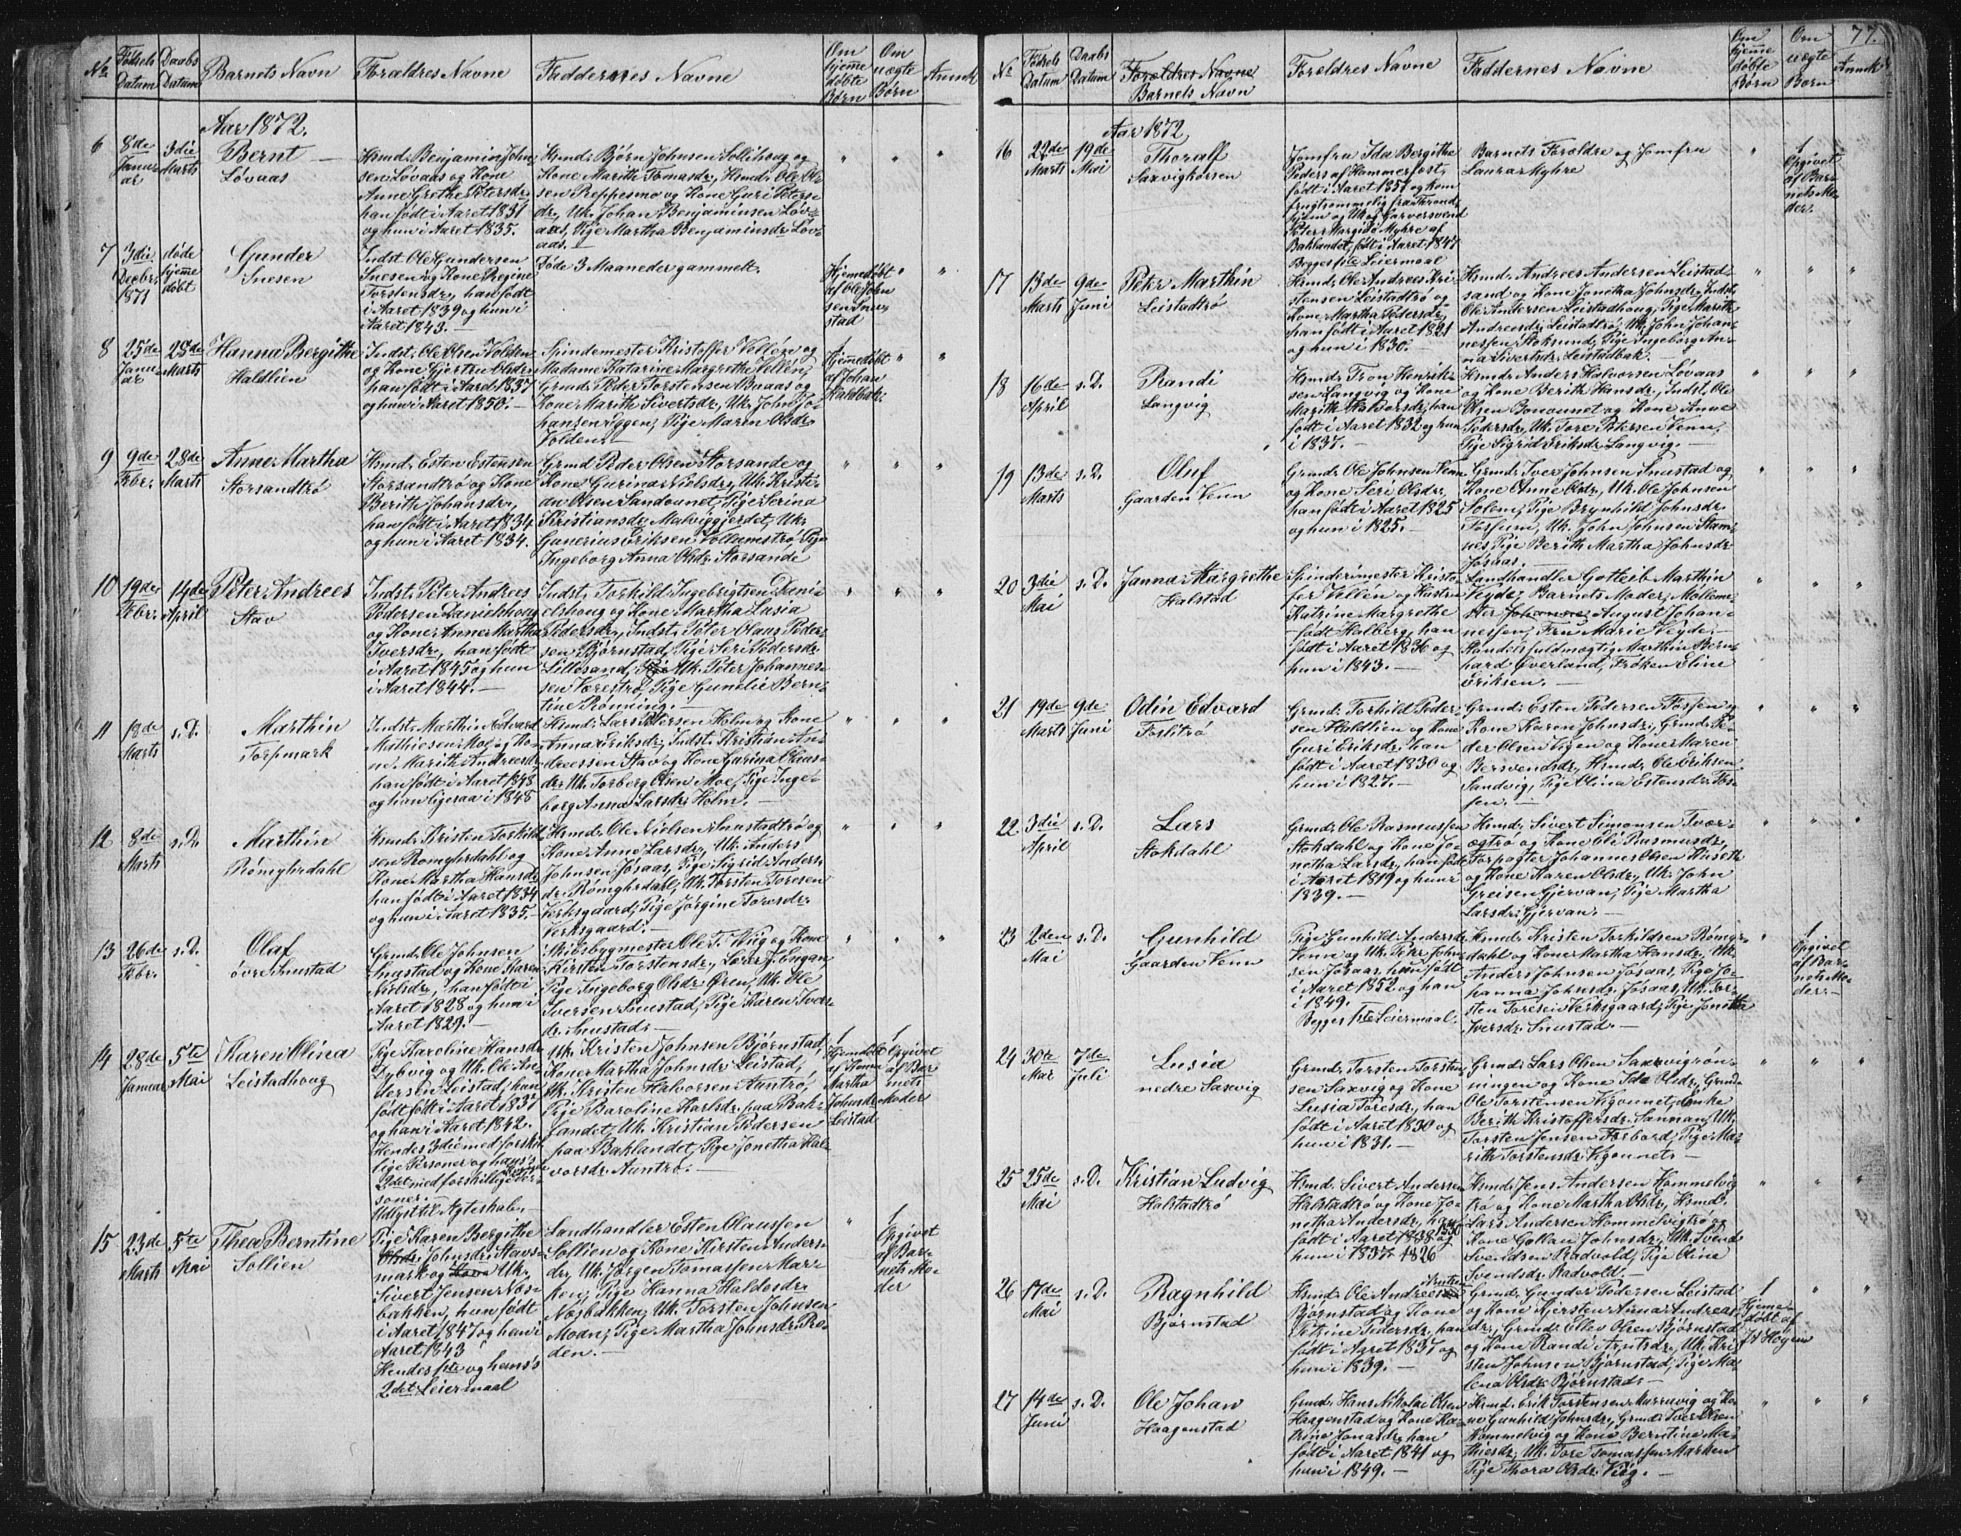 77.
No
Fødsels Datum
Daabs Datum
Barnets Navn
Forældres Navne
Faddernes Navne
Om hjemme døbte Børn
Om uægte Børn
Anmk
Aar 1872.
6
8de Januar
3die Marts
Bernt
Løvaas
Hsmd. Benjamin John-
sen Løvaas og Kone
Anne Grethe Petersdr,
han født i Aaret 1831
og hun i Aaret 1835.
Hsmd. Bjørn Johnsen Sollihoug og
Kone Marith Tomasdr, Hsmd. Ole Ol-
sen Reppesmo og Kone Guri Peters-
dr, Uk. Johan Benjaminsen Løv-
aas, Pige Martha Benjaminsdr Løv-
aas.
7
3die Decbr. 1871
døde hjeme døbt
Gunder
Snesen
Indst. Ole Gundersen
Snesen og Kone Regine
Torstensdr, han født
i Aaret 1839 og hun i
Aaret 1843.
Døde 3 Maaneder gammelt.
1
Hjemedøbt
af Ole John
sen Snu-
stad
8
25de Januar
28de Marts
Hanna Bergithe
Haldlien
Indst. Ole Olsen Volden
og Kone Gjertru Olsdr,
han født i Aaret 1837
og hun i Aaret 1850.
Spindemester Kristoffer Vellén og
Madame Katarine Margrethe Vellén,
Grmd. Peder Torstensen Bnaas og
Kone Marith Sivertsdr, Uk. John Jo-
hansen Viggen, Pige Maren Olsdr
Volden.
1
Hjemedøbt
af Johan
Haldbak.
9
9de Febr.
28de Marts
Anne Martha
Storsandtrø
Hsmd. Esten Estensen
Storsandtrø og Kone
Berith Johansdr,
han født i Aaret 1834
og hun i Aaret 1834.
Grmd Peder Olsen Storsande og
Kone Gurina Nielsdr, Uk. Kriste-
an Olsen Sandounet, Pige Serina
Kristiansdr Malviggjerdet, Uk.
Gunerius Eriksen Sollumstrø, Pige
Ingeborg Anna Olsdr Storsande
10
19de Febr.
14de April
Peter Andreas
Stav
Indst. Peter Andreas
Pedersen Danielshoug
og Kone Anne Martha
Iversdr, han født
i Aaret 1845 og hun
i Aaret 1844.
Indst. Torkild Ingebrigtsen Dani-
elshoug og Kone Martha Lusia
Pedersdr, Indst. Peter Olaus Peder-
sen Bjørnstad, Pige Seri Pedersdr
Lillesand, Uk. Peter Johannes-
sen Værestrø, Pige Gunelie Bern-
tine Rønning.
11
18de Marts
s. D.
Marthin
Torpmark
Indst. Marthin Edvard
Mathiesen Moe og Ko-
ne Marith Andreasdr,
han født i Aaret 1848
og hun ligesaa i 1848
Hsmd. Lars Petersen Holm og Kone
Anna Eriksdr, Indst. Kristian An-
dreassen Stav og Kone Garina Olaus-
dr, Uk. Torberg Olsen Moe, Pige Inge-
borg Anna Larsdr Holm.
12
8de Marts
s. D.
Marthin
Rømghrdahl
Hsmd. Kristen Torkild-
sen Rømghrdahl og
Kone Martha Hansdr,
han født i Aaret 1834
og hun i Aaret 1835.
Hsmd. Ole Nielsen Snustadtrø og
Kone Anne Larsdr, Uk. Anders
Johnsen Jøsaas, Pige Sigrid Anders-
dr. Rømghrdahl, Uk. Torsten Toresen
Verksgaard, Pige Jørgine Toresdr
Verksgaard.
13
26de Febr.
s. D.
Olaf
øvre Snustad
Grmd. Ole Johnsen
Snustad og Kone Karen
Nielsdr, han født i
Aaret 1828 og hun i
Aaret 1829.
Skibsbygmester Ole T. Viig og Kone
Kirsten Torstensdr, Lærer J. Engan
Pige Ingeborg Olsdr Øren, Uk. Ole
Iversen Snustad, Pige Karen Iver-
dr. Snustad.
14
28de Januar
5te Mai
Karen Olina
Leistadhoug
Pige Karoline Hansdr
Dybvig og Uk. Ole An-
dersen Leistad, han
født i Aaret 1837
og han i Aaret 1842.
Hendes 3die med forskjel-
lige Personer og hans
2det med forskillige Per-
soner.
Udlyst til Ægteskab.
Uk. Kristen Johnsen Bjørnstad,
Kone Martha Johnsdr Leistad,
Uk. Kristen Halvorsen Auntrø,
Pige Baroline Karlsdr paa Bak-
landet, Uk. Kristian Pedersen
paa Baklandet, Pige Jonetha Hal-
vorsdr. Auntrø.
1
Hjemdøbt
af Kone
Martha
Johnsdr
Leistad
1
Opgivet
af Bar-
nets
Moder
15
23de Marts
5te Mai
Thea Berntine
Sollien
Pige Karen Bergithe
Johnsdr. Stavs-
mark og Uk.
Sivert Jensen Næs-
bakken, hun født
i Aaret 1847 og han i
Aaret 1843
Hendes 1ste og hans's
2det Leiermaal
Landhandler Esten Olaussen
Sollien og Kone Kirsten Anders-
dr, Uk. Jørgen Tomassen Mar-
ken, Pige Hanna Haldosdr
Næsbakken, Uk. Torsten Johnsen
Moan, Pige Martha Johnsdr Ro-
den.
1
Opgivet
af Bar-
nets Mo-
der
No
Fødsels Datum
Daabs Datum
Forældres Navne
Barnets Navn
Forældres Navne
Faddernes Navne
Om hjemme døbte Børn
Om uægte Børn
Anmk
Aar 1872
16
22de Marts
19de Mai
Thoralf
Saxvigkorsen
Jomfru Ida Bergithe
Peders af Hammerfost,
født i Aaret 1851 og kom
frugtsommelig fra Thrond-
hjem og Uk. og Garversvend
Peter Margido Myhre af
Baklandet, født i Aaret 1847
Begges 1ste Leiermaal
Barnets Forældre og Jomfru
Laura Myhre
1
Opgivet
af Bar-
nets Mo-
der.
17
13de Marts
9de Juni
Peter Marthin
Leistadtrø
Hsmd. Ole Andreas Kri-
stensen Leistadtrø og
Kone Martha Pedersdr,
han født i Aaret 1821
og hun i 1830.
Hsmd. Andreas Andersen Leistad-
sand og Kone Jonetha Johnsdr, Indst.
Ole Andersen Leistadhoug, Pige Marith
Andreasdr, Leistadtrø, Uk. John Johan-
nessen Stoksund, Pige Ingeborg An-
na Sivertsdr Leistadbak.
18
16de April
s. D.
Randi
Langvig
Hsmd. Tron Henrik-
sen Langvig og Kone
Marith Halvorsdr, han
født i Aaret 1832 og hun
i 1837.
Hsmd. Anders Halvorsen Løvaas
og Kone Berith Hansdr, Indst. Ole
Olsen Bonounet og Kone Anne
Pedersdr, Uk. Tore Petersen Venn,
Pige Sigrid Eriksdr Langvig.
19
13de Marts
s. D.
Oluf
Gaarden Venn
Grmd. Ole Johnsen Venn
og Kone Seri Olsdr,
han født i Aaret 1825
og hun i 1825.
Grmd. Iver Johnsen Snustad og
Kone Anne Olsdr, Uk. Ole Johnsen
Solem, Pige Brynhild Johnsdr
Torpem, Uk. John Johnsen Stam-
nes Pige Berith Martha Johnsdr
Jøsaas.
20
3die Mai
s. D.
Janna Margrethe
Halstad
Spinderimester Kristo-
fer Vellén og Hustru
Katrine Margrethe
født Halberg, han
født i Aaret 1836 og
hun i 1843.
Landhandler Gotteib Marthin
Veyde, Barnets Moder, Møllerme-
ster August Johan-
nessen, Fru Marie Veyde,
Handelsfuldmægtig Marthin Bern-
hard Overland, Frøken Eline
Eriksen.
21
19de Marts
9de Juni
Odin Edvard
Foslitrø
Grmd. Torkild Peder-
sen Haldlien og Kone
Guri Eriksdr, han
født i Aaret 1830 og
hun i 1827.
Grmd. Esten Pedersen Fossen og
Kone Karen Johnsdr, Grmd. Pe-
der Olsen Vigen og Kone Maren
Bersvendsdr, Hsmd. Ole Eriksen
Sandvig, Pige Olina Estensdr Fos-
sen.
22
3die April
s. D.
Lars
Stokdahl
Grmd. Ole Rasmussen
Stokdahl og Kone Jo-
netha Larsdr, han født
i Aaret 1819 og hun i
1839.
Hsmd. Sivert Simonsen Tvær-
egtrø og Kone Oli Rasmusdr,
Forpagter Johannes Olsen Huseth
og Kone Karen Olsdr, Uk. John
Greisen Gjervan, Pige Martha
Larsdr Gjervan.
23
2den Mai
s. D.
Gunhild
Gaarden Venn
Pige Gunhild Andersdr
Venne og Uk. Peter John-
sen Jøsaas, hun født
i Aaret 1852 og han
i 1849.
Begges 1ste Leiermaal.
Hsmd. Kristen Torkildsen Rømgr-
dahl og Kone Martha Hansdr, Uk.
Anders Johnsen Jøsaas, Pige Jo-
hanna Johnsdr. Jøsaas, Uk. Tor-
sten Toresen Verksgaard, Pige Jonetha
Iversdr. Snustad.
1
Opgivet
af Bar-
nets Mo-
der.
24
30te Mar
7de Juli
Lusia
nedre Saxvig
Grmd. Torsten Torsten-
sen Saxvig og Kone
Lusia Toresdr, han
født i Aaret 1830 og
hun i 1831.
Grmd. Lars Olsen Saxvigrøn-
ningen og Kone Ida Olsdr, Grmd.
Ole Torstensen Vigounet, Enke
Berith Kristoffersdr. Sannan, Uk.
Torsten Jensen Forbord, Pige Ma-
rith Torstensdr Vigounet.
25
25de Mai
s. D.
Kristian Ludvig
Halstadtrø
Hsmd. Sivert Andersen
Halstadtrø og Kone Jo-
netha Andersdr, han
født i Aaret 1838 og
hun i 1837. 1826
Hsmd. Jens Andersen Hommelvig
trø og Kone Martha Olsdr, Hsmd.
Lars Andersen Hommelvigtrø og
Kone Gollau Johnsdr, Uk. Svend
Svendsen Radvold, Pige Olina
Svendsdr Radvold.
26
17de Mai
s. D.
Ragnhild
Bjørnstad
Hsmd. Ole Andreas
Bjørnstad og Kone
Petrine Pedersdr, han
født i Aaret 1837 og
hun i 1839.
Grmd. Gunder Pedersen Leistad
og Kone Kjersten Anna Andreas-
dr, Grmd. Ellev Olsen Bjørnstad
og Kone Randi Arntsdr, Uk. Kri-
sten Johnsen Bjørnstad, Pige Ma-
lena Olsdr Bjørnstad.
1
Hjeme-
døbt af
J. Hogen
27
14de Juni
s. D.
Ole Johan
Haagenstad
Grmd. Hans Nikolai Olsen
Haagenstad og Kone Ka-
trine Jonasdr, han
født i Aaret 1841 og
hun i 1849.
Hsmd. Erik Torstensen Muruvig og Ko-
ne Gunhild Johnsdr, Grmd. Iver Olsen
Hommelvig og Kone Berntine Ma-
thiesdr, Uk. Tore Tomassen Marken
Pige Thora Olsdr. Viig.